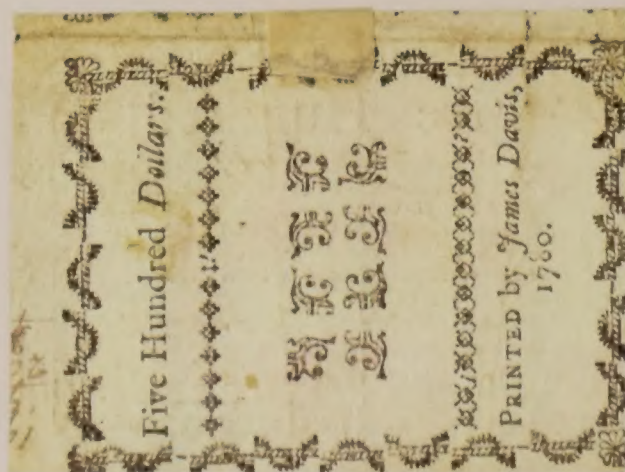 Five Hundred Dollars.
PRINTED by James Davis,
1780.